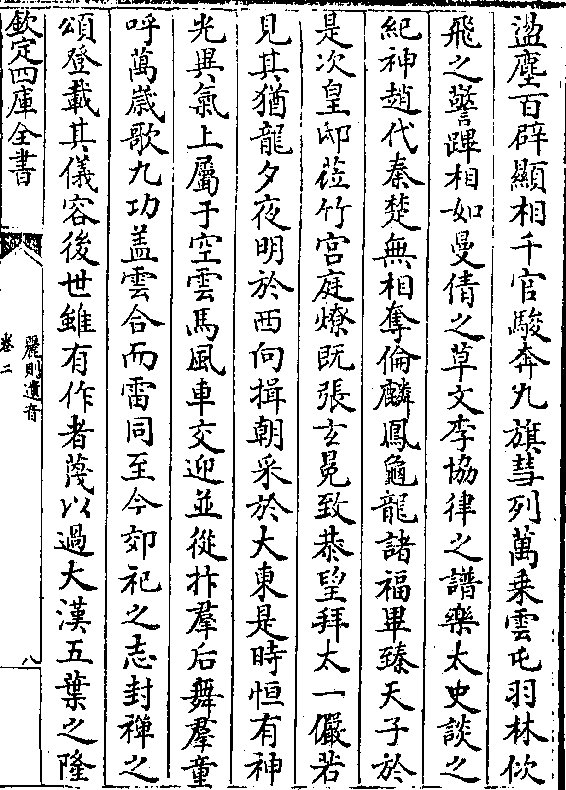 盪塵百辟顯相千官駿奔九旗彗列萬乗雲屯羽林佽
飛之警蹕相如曼倩之草文李協律之譜樂太史談之
紀神趙代秦楚無相奪倫麟鳳龜龍諸福畢臻天子於
是次皇邸蒞竹宫庭燎既張玄冕致恭望拜太一儼若
見其猶龍夕夜明於西向揖朝采於大東是時恒有神
光異氣上屬于空雲馬風車交迎並從抃羣后舞羣童
呼萬歲歌九功盖雲合而雷同至今郊祀之志封禪之
頌登載其儀容後世雖有作者蔑以過大漢五葉之隆
欽定四庫全書
麗則遺音
卷二
八